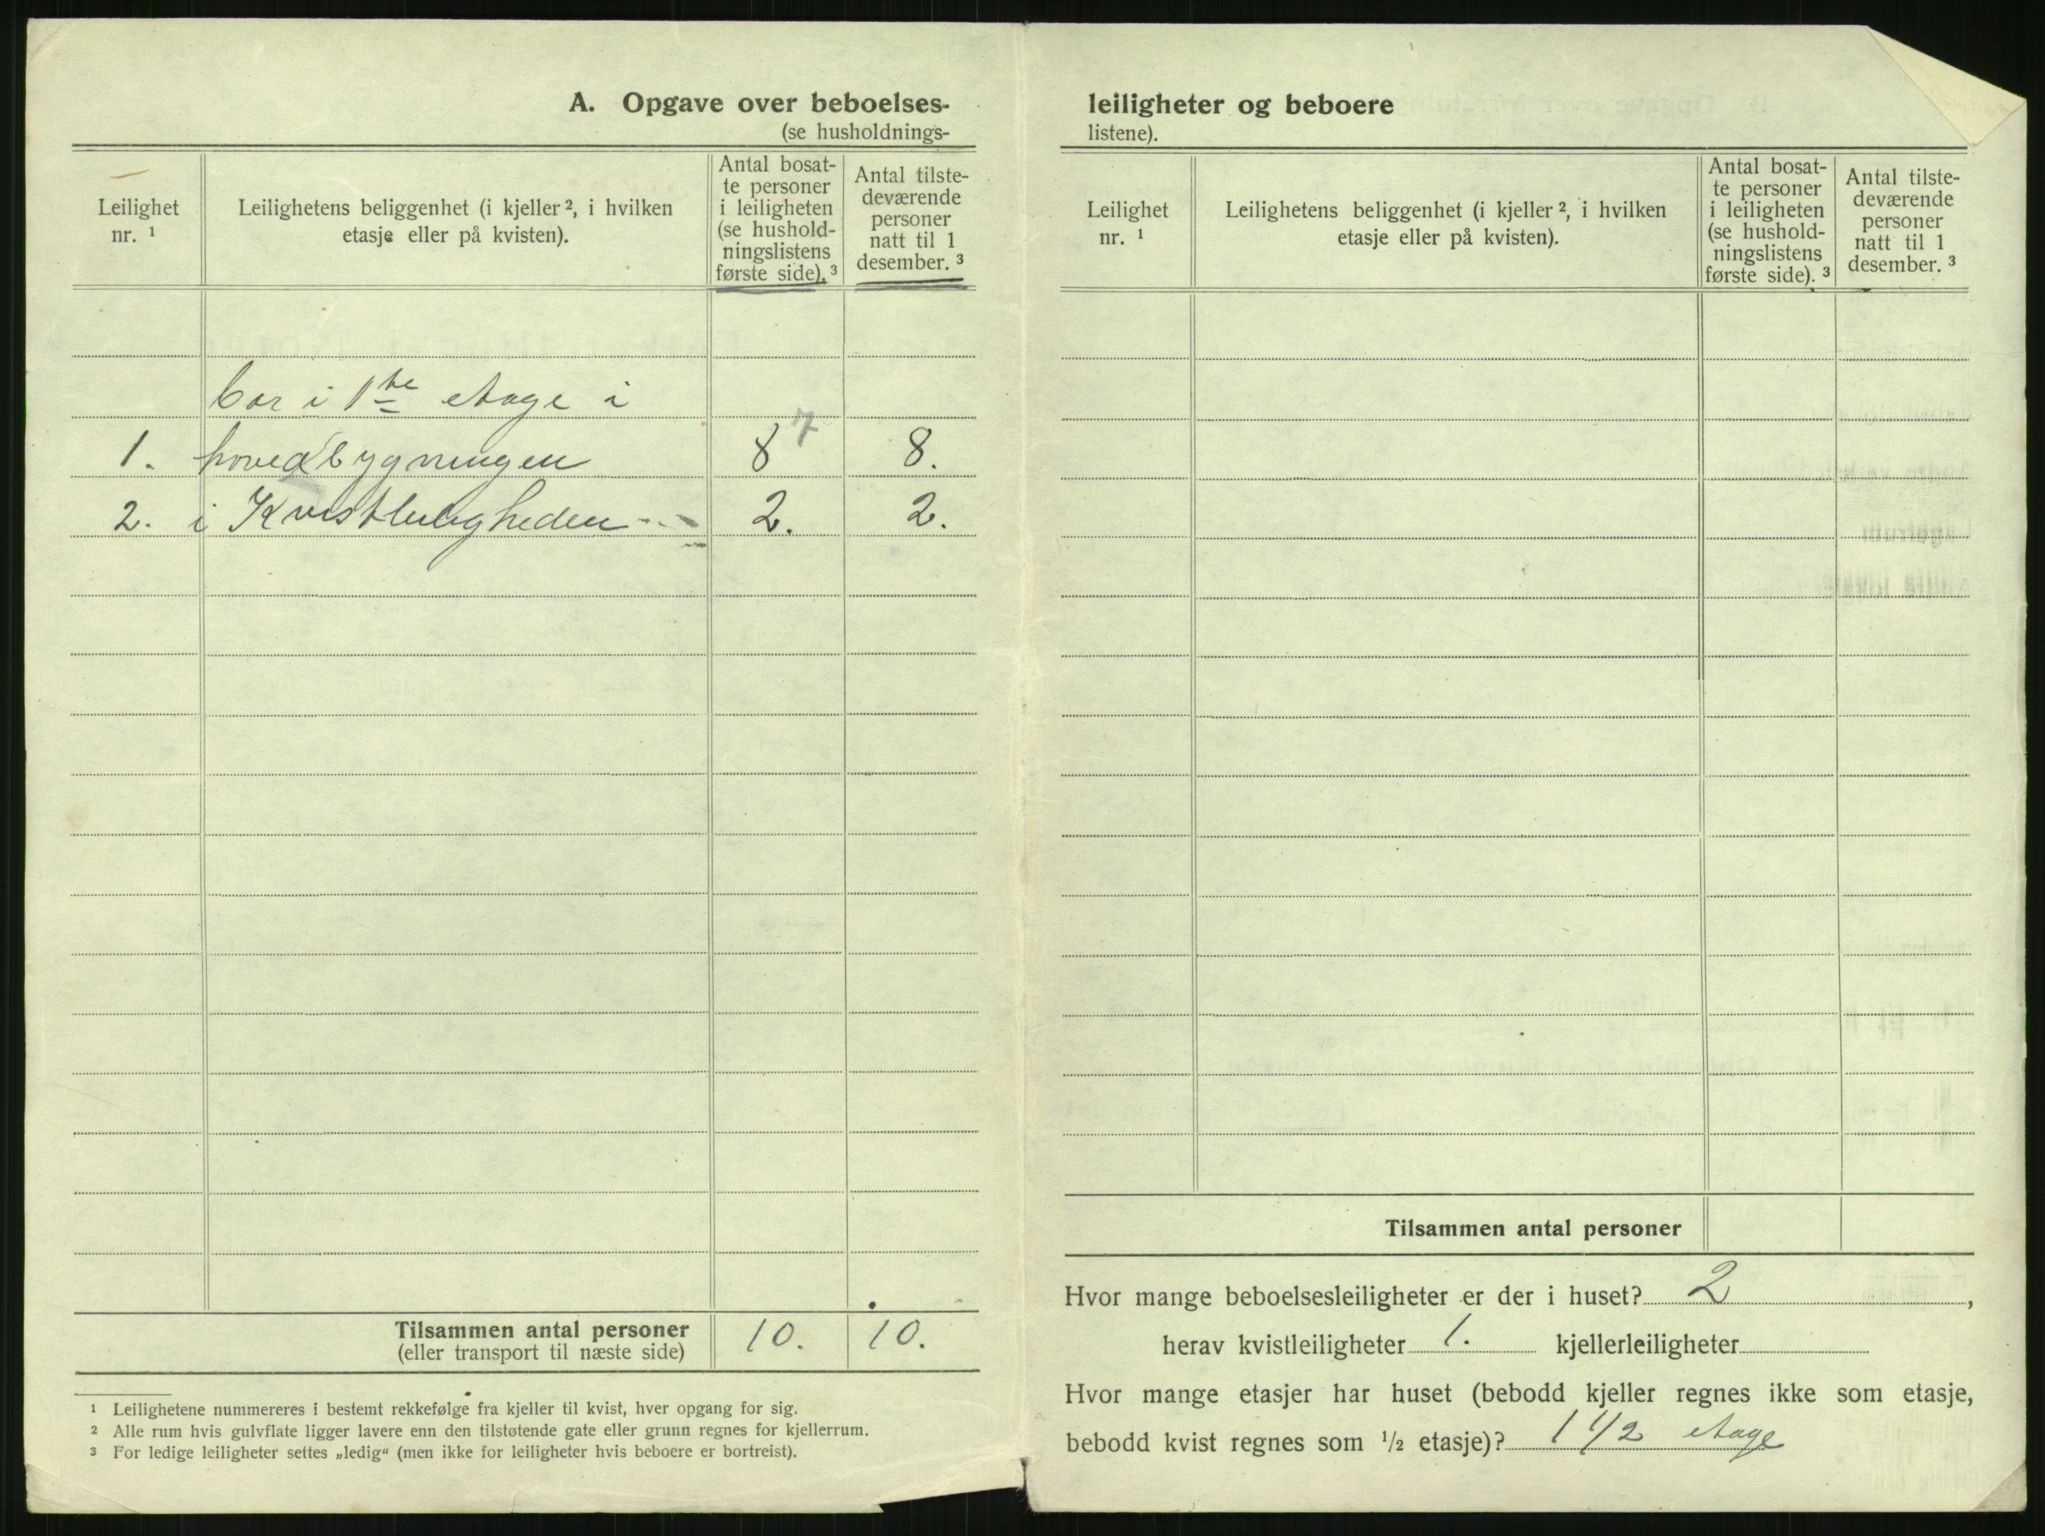 A. Opgave over beboelses-
(se husholdnings-
Leilighet
nr. ¹
Leilighetens beliggenhet (i kjeller ², i hvilken
etasje eller på kvisten).
Antal bosat-
te personer
i leiligheten
(se hushold-
ningslistens
første side). ³
Antal tilste-
deværende
personer
natt til 1
desember. ³
bor i 1te etage i
1. hovedbygningen 8 7 8.
2. i Kvistleiligheden 2. 2.
Tilsammen antal personer 10. 10.
(eller transport til næste side)
¹ Leilighetene nummereres i bestemt rekkefølge fra kjeller til kvist, hver opgang for sig.
² Alle rum hvis gulvflate ligger lavere enn den tilstøtende gate eller grunn regnes for kjellerrum.
³ For ledige leiligheter settes „ledig“ (men ikke for leiligheter hvis beboere er bortreist).
leiligheter og beboere
listene).
Leilighet
nr. ¹
Leilighetens beliggenhet (i kjeller ², i hvilken
etasje eller på kvisten).
Antal bosat-
te personer
i leiligheten
(se hushold-
ningslistens
første side). ³
Antal tilste-
deværende
personer
natt til 1
desember. ³
Tilsammen antal personer
Hvor mange beboelsesleiligheter er der i huset? 2,
herav kvistleiligheter 1. kjellerleiligheter
Hvor mange etasjer har huset (bebodd kjeller regnes ikke som etasje,
bebodd kvist regnes som ½ etasje)? 1 1/2 etage